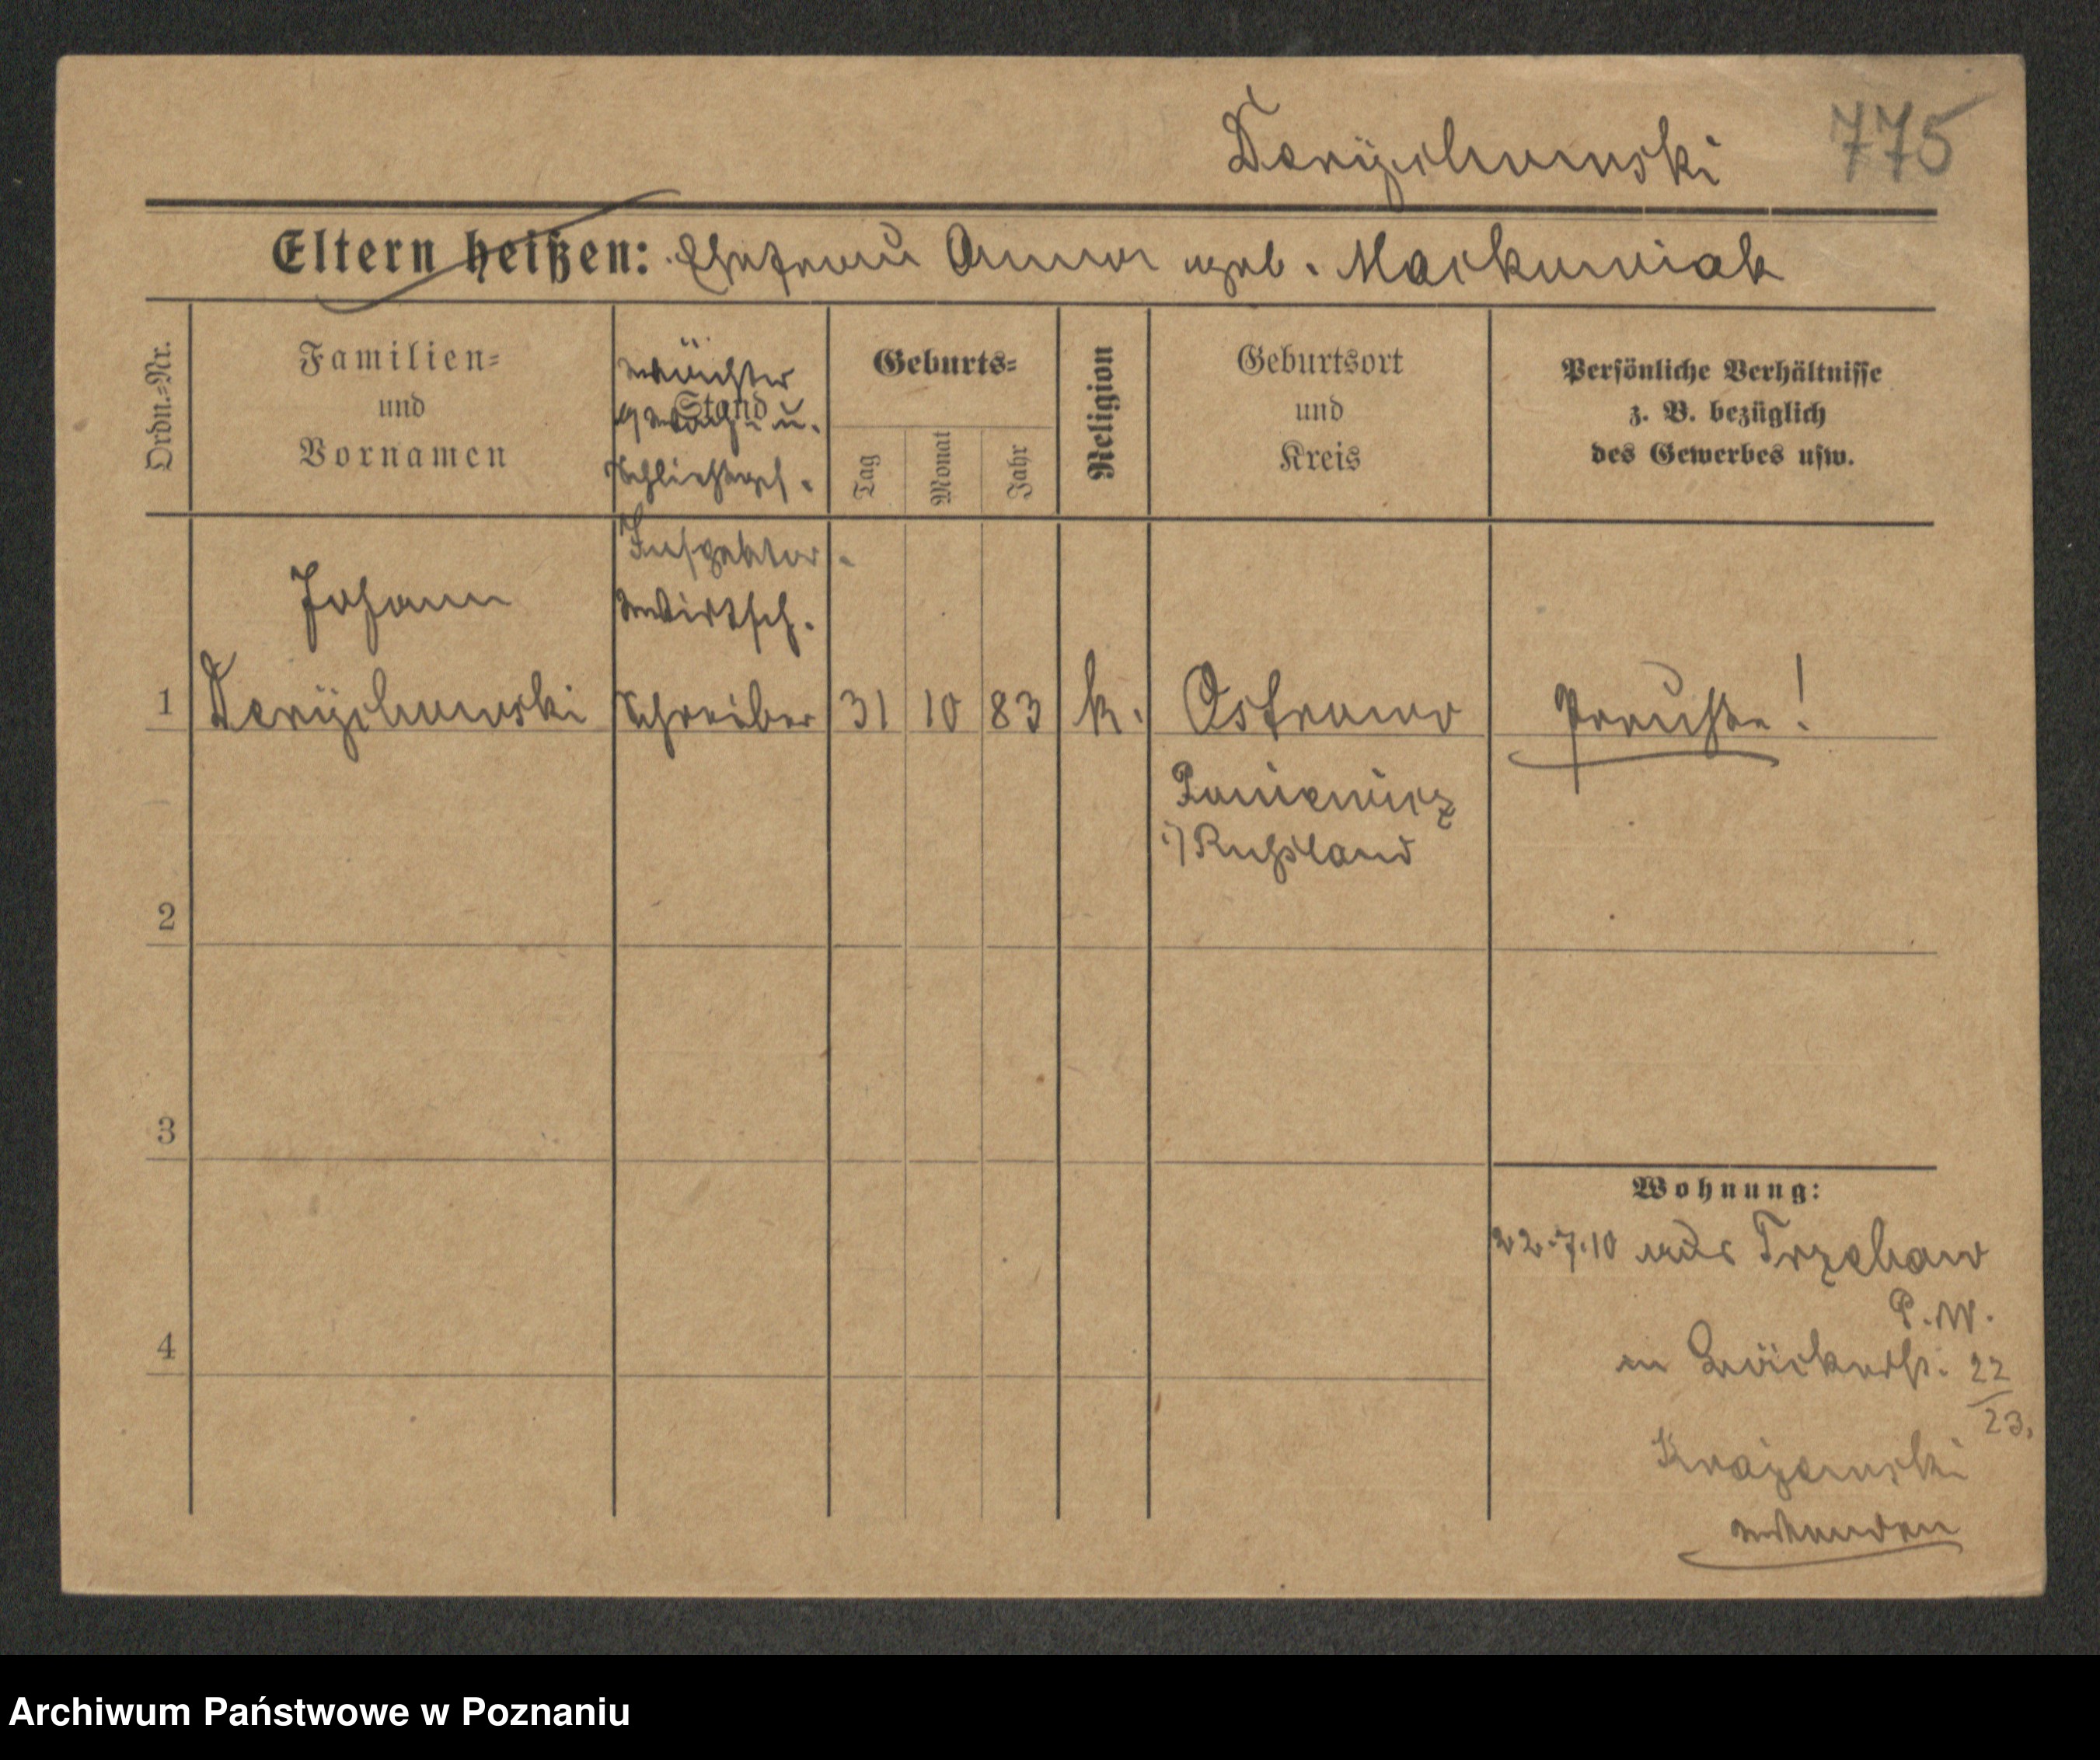 Derzychumski 775
Eltern heißen: Ehefrau Anna geb. Maćkowiak
Ordn.=Nr.
Familien=
und
Vornamen
Wächter
Stand
u.
Schließges.
Geburts=
Tag
Monat
Jahr
Religion
Geburtsort
und
Kreis
Persönliche Verhältnisse
z. B. bezüglich
des Gewerbes usw.
Inspektor
Johann
Wirtsch.
1 Schreiber 31 10 83 k. Ostrowo Preuße!
i) Russland
2
3
Wohnung:
22.7.10 aus Trzebaw
P. W.
4
22
23.
Krajewski
Archiwum Państwowe w Poznaniu